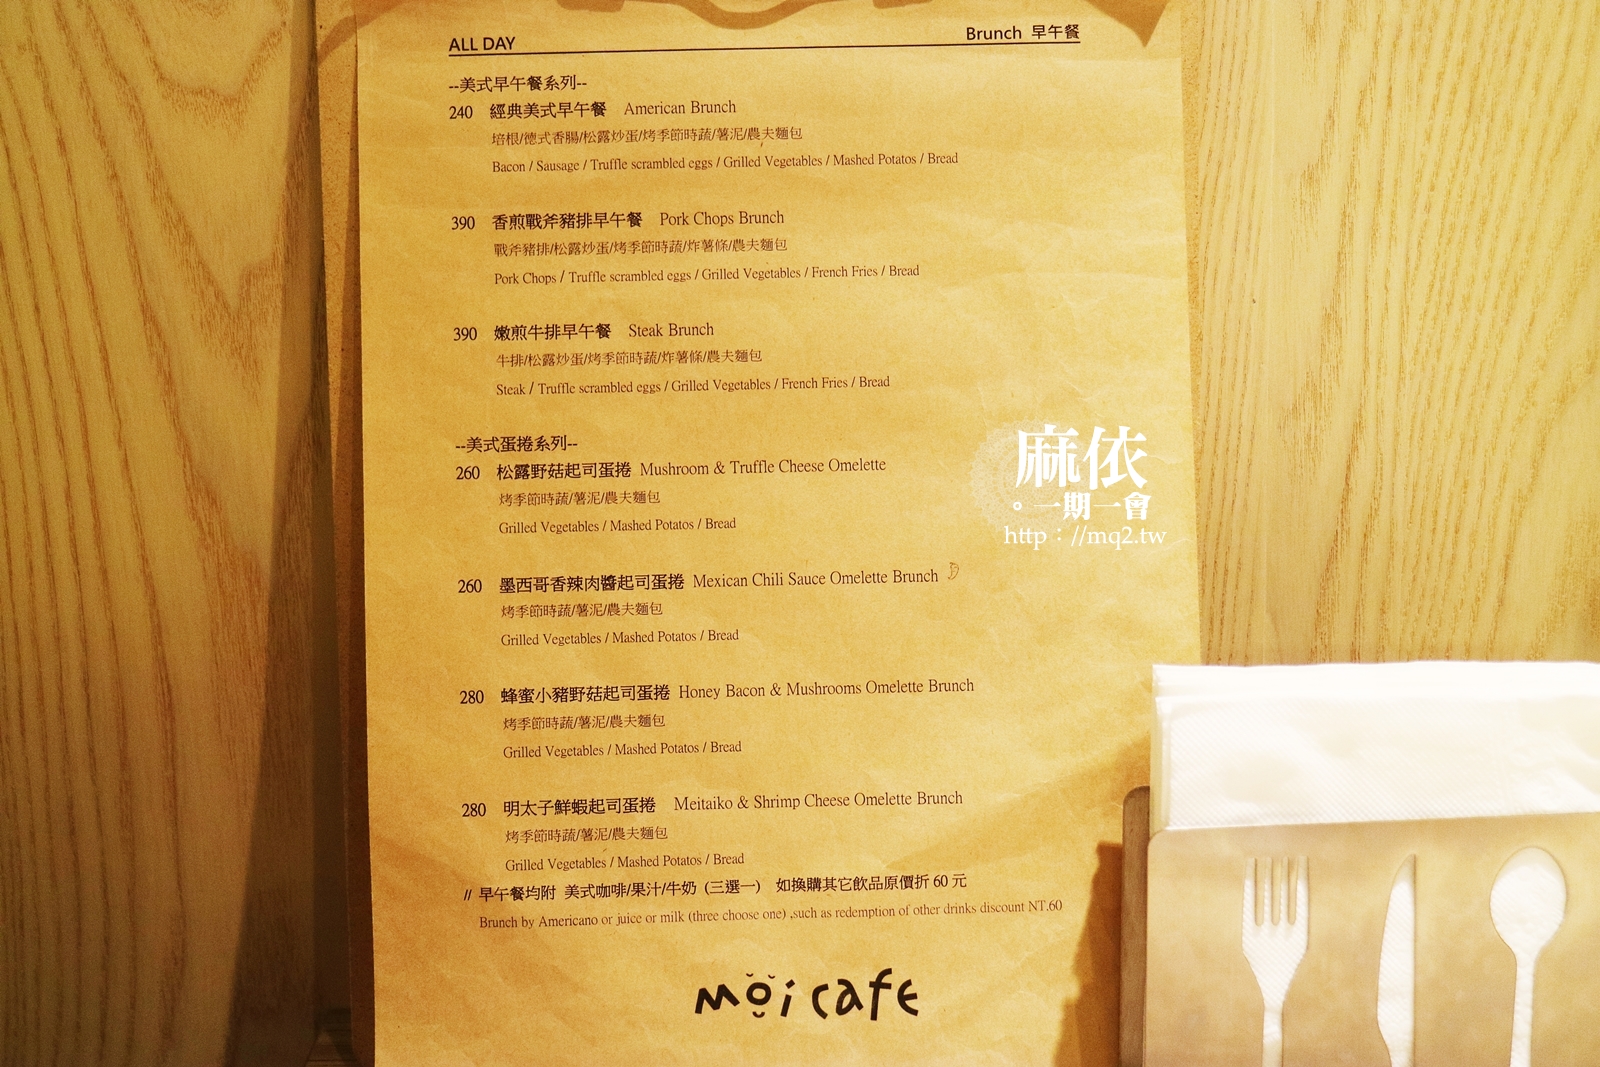 ALL DAY
Brunch 早午餐
--美式早午餐系列--
240 經典美式早午餐 American Brunch
培根/德式香腸/松露炒蛋/烤季節時蔬/薯泥/農夫麵包
Bacon / Sausage / Truffle scrambled eggs / Grilled Vegetables / Mashed Potatos / Bread
390 香煎戰斧豬排早午餐 Pork Chops Brunch
戰斧豬排/松露炒蛋/烤季節時蔬/炸薯條/農夫麵包
Pork Chops / Truffle scrambled eggs / Grilled Vegetables / French Fries / Bread
390 嫩煎牛排早午餐 Steak Brunch
牛排/松露炒蛋/烤季節時蔬/炸薯條/農夫麵包
Steak / Truffle scrambled eggs / Grilled Vegetables / French Fries / Bread
--美式蛋捲系列--
260 松露野菇起司蛋捲 Mushroom & Truffle Cheese Omelette
烤季節時蔬/薯泥/農夫麵包
Grilled Vegetables / Mashed Potatos / Bread
260 墨西哥香辣肉醬起司蛋捲 Mexican Chili Sauce Omelette Brunch
烤季節時蔬/薯泥/農夫麵包
Grilled Vegetables / Mashed Potatos / Bread
280 蜂蜜小豬野菇起司蛋捲 Honey Bacon & Mushrooms Omelette Brunch
烤季節時蔬/薯泥/農夫麵包
Grilled Vegetables / Mashed Potatos / Bread
280 明太子鮮蝦起司蛋捲 Meitaiko & Shrimp Cheese Omelette Brunch
烤季節時蔬/薯泥/農夫麵包
Grilled Vegetables / Mashed Potatos / Bread
// 早午餐均附 美式咖啡/果汁/牛奶 (三選一) 如換購其它飲品原價折 60 元
Brunch by Americano or juice or milk (three choose one) ,such as redemption of other drinks discount NT.60
moi cafe
麻依
。一期一會
http：//mq2.tw